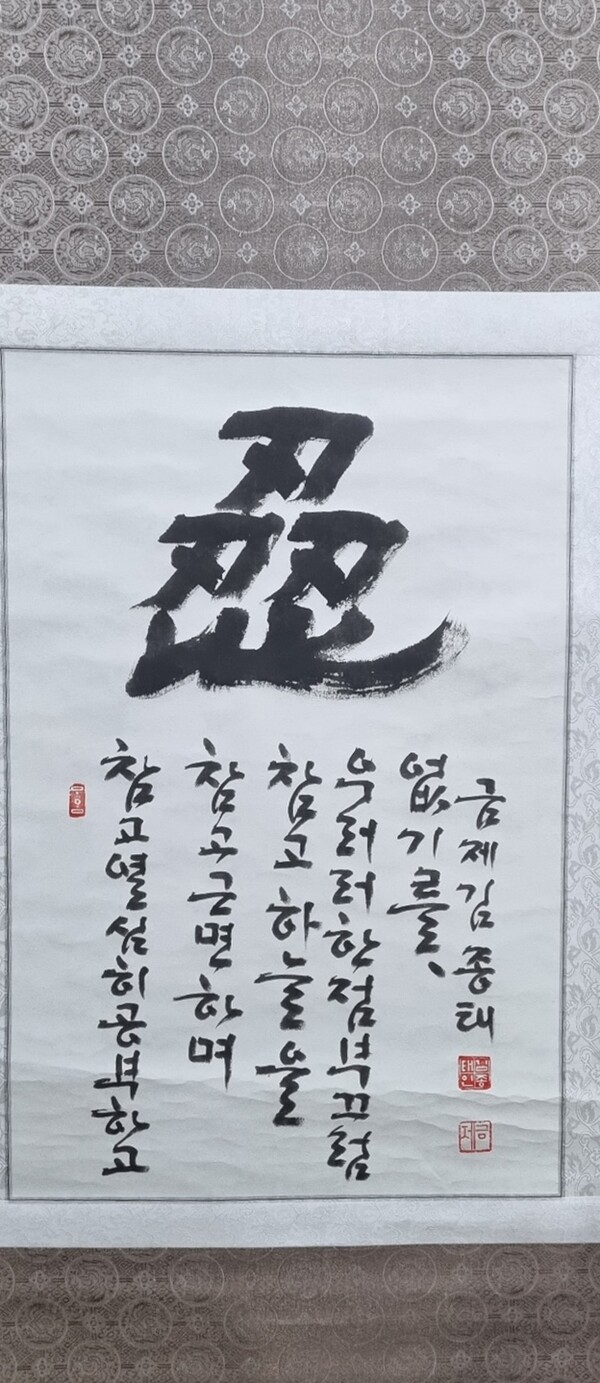 참고열심히공부하고
참고근면하며
참고하늘을
우러러한점부끄럼
없기를、
금제김종태
김종태인
금제